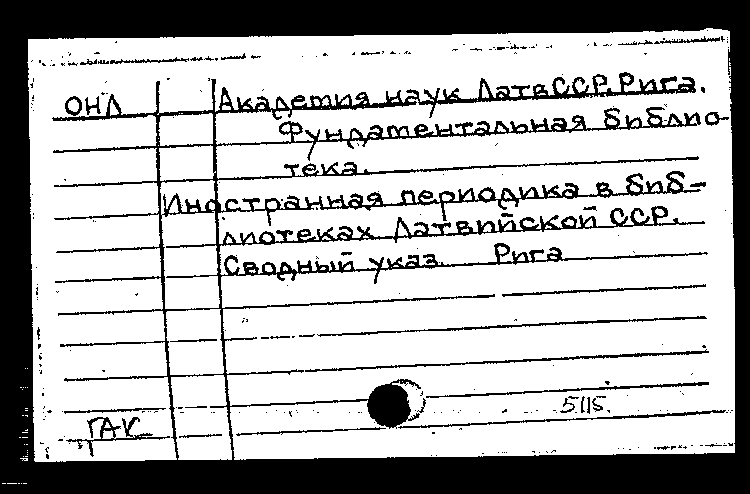 ОНЛ Академия наук ЛатвССР. Рига.
Фундаментальная библио-
тека.
Иностранная периодика в биб-
лиотеках Латвийской ССР.
Сводный указ. Рига
5115.
ГАК